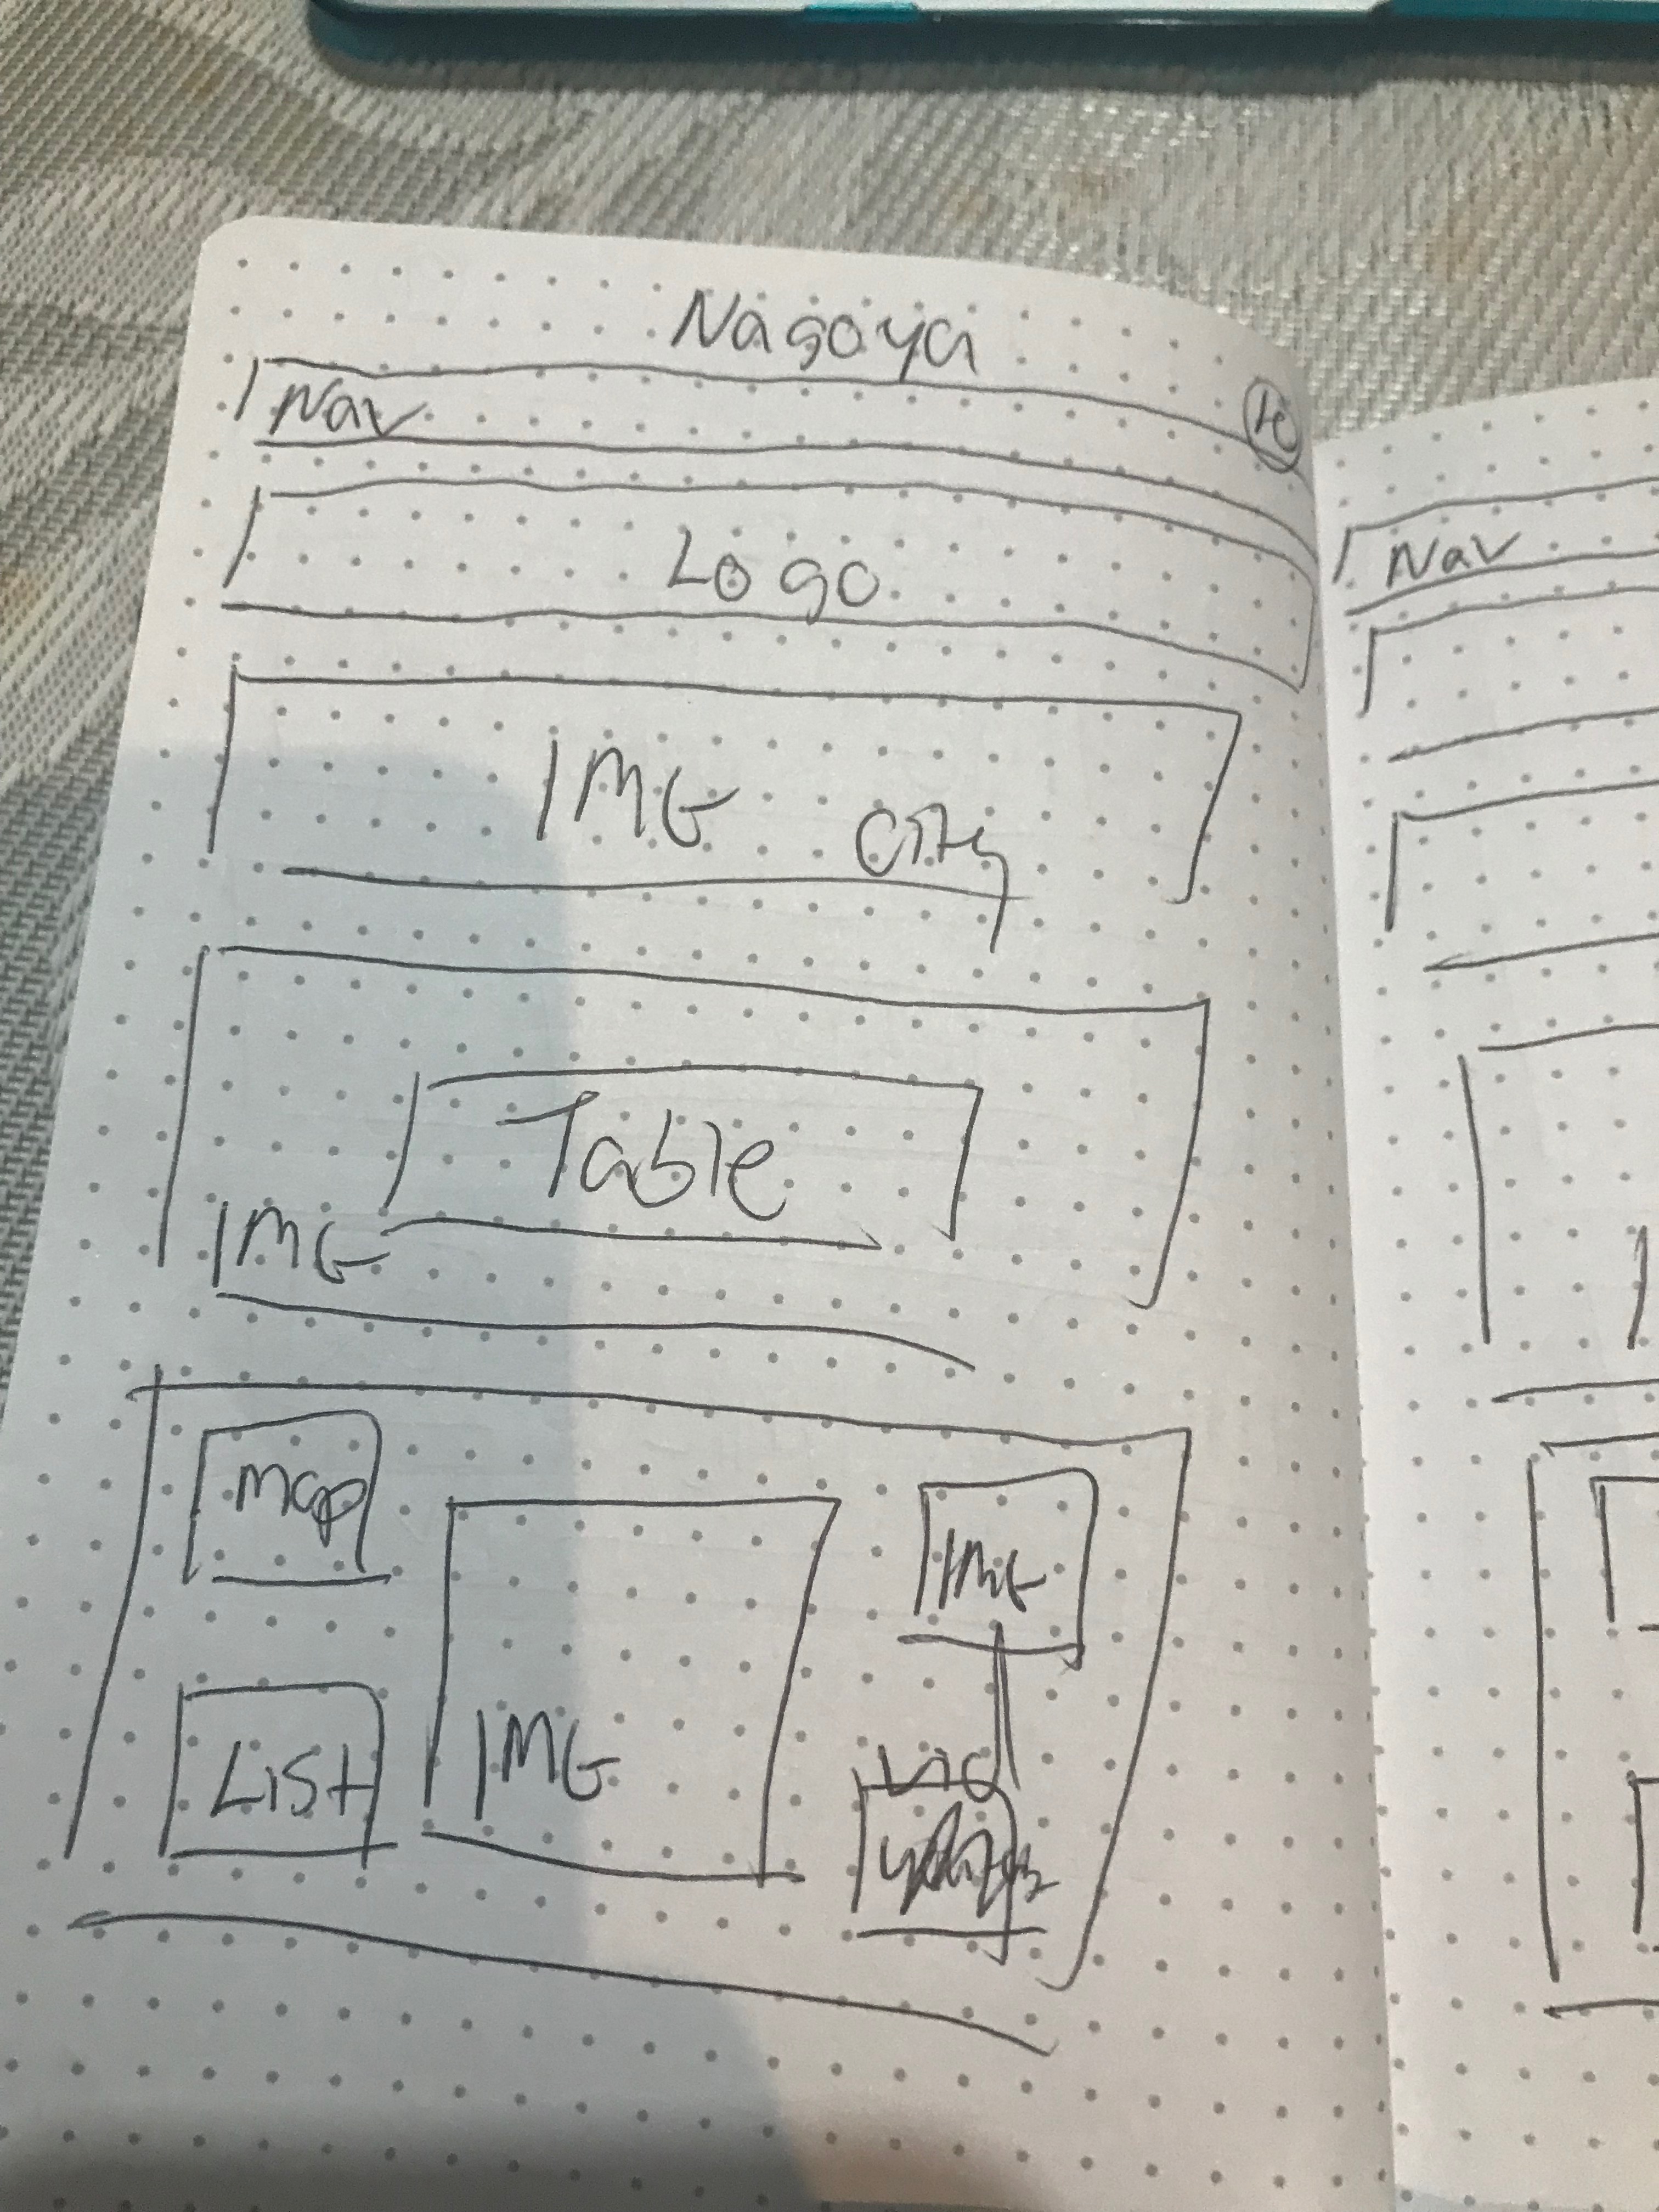 Nagoya
Nav
Logo
IMG
City
Table
IMG
Map
IMG
IMG
List
Vid
Nav